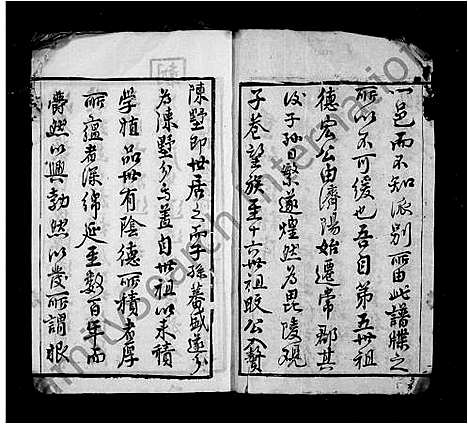 一邑而不知派别所由此譜牒之
所以不可緩也吾自第五世祖
德宏公由濟陽始遷常郡其
後子孫日繁遂煌然為毘陵觀
子巷望族至十六世祖公贅
陳墅即世居之而子孫蕃盛遂分
為陳墅分烏蓋自世祖以來積
學植品世有陰德所積者厚
所蘊者深綿延至數百年而
爵然以興勃然以發所謂根
FamilySearch International